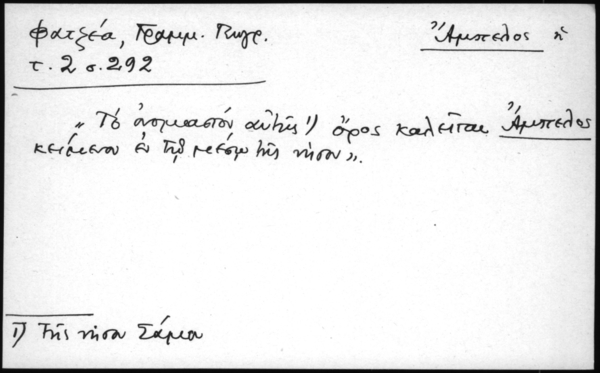 Φατζέα, Γραμμ. Γεωγρ.
Ἄμπελος ἡ
τ. 2 σ. 292
„ Τὸ ὀνομαστόν αὐτῆς 1) ὄρος καλεῖται Ἄμπελος
κείμενον ἐν τῷ μέσῳ τῆς νήσου".
1) τῆς νήσου Σάμου